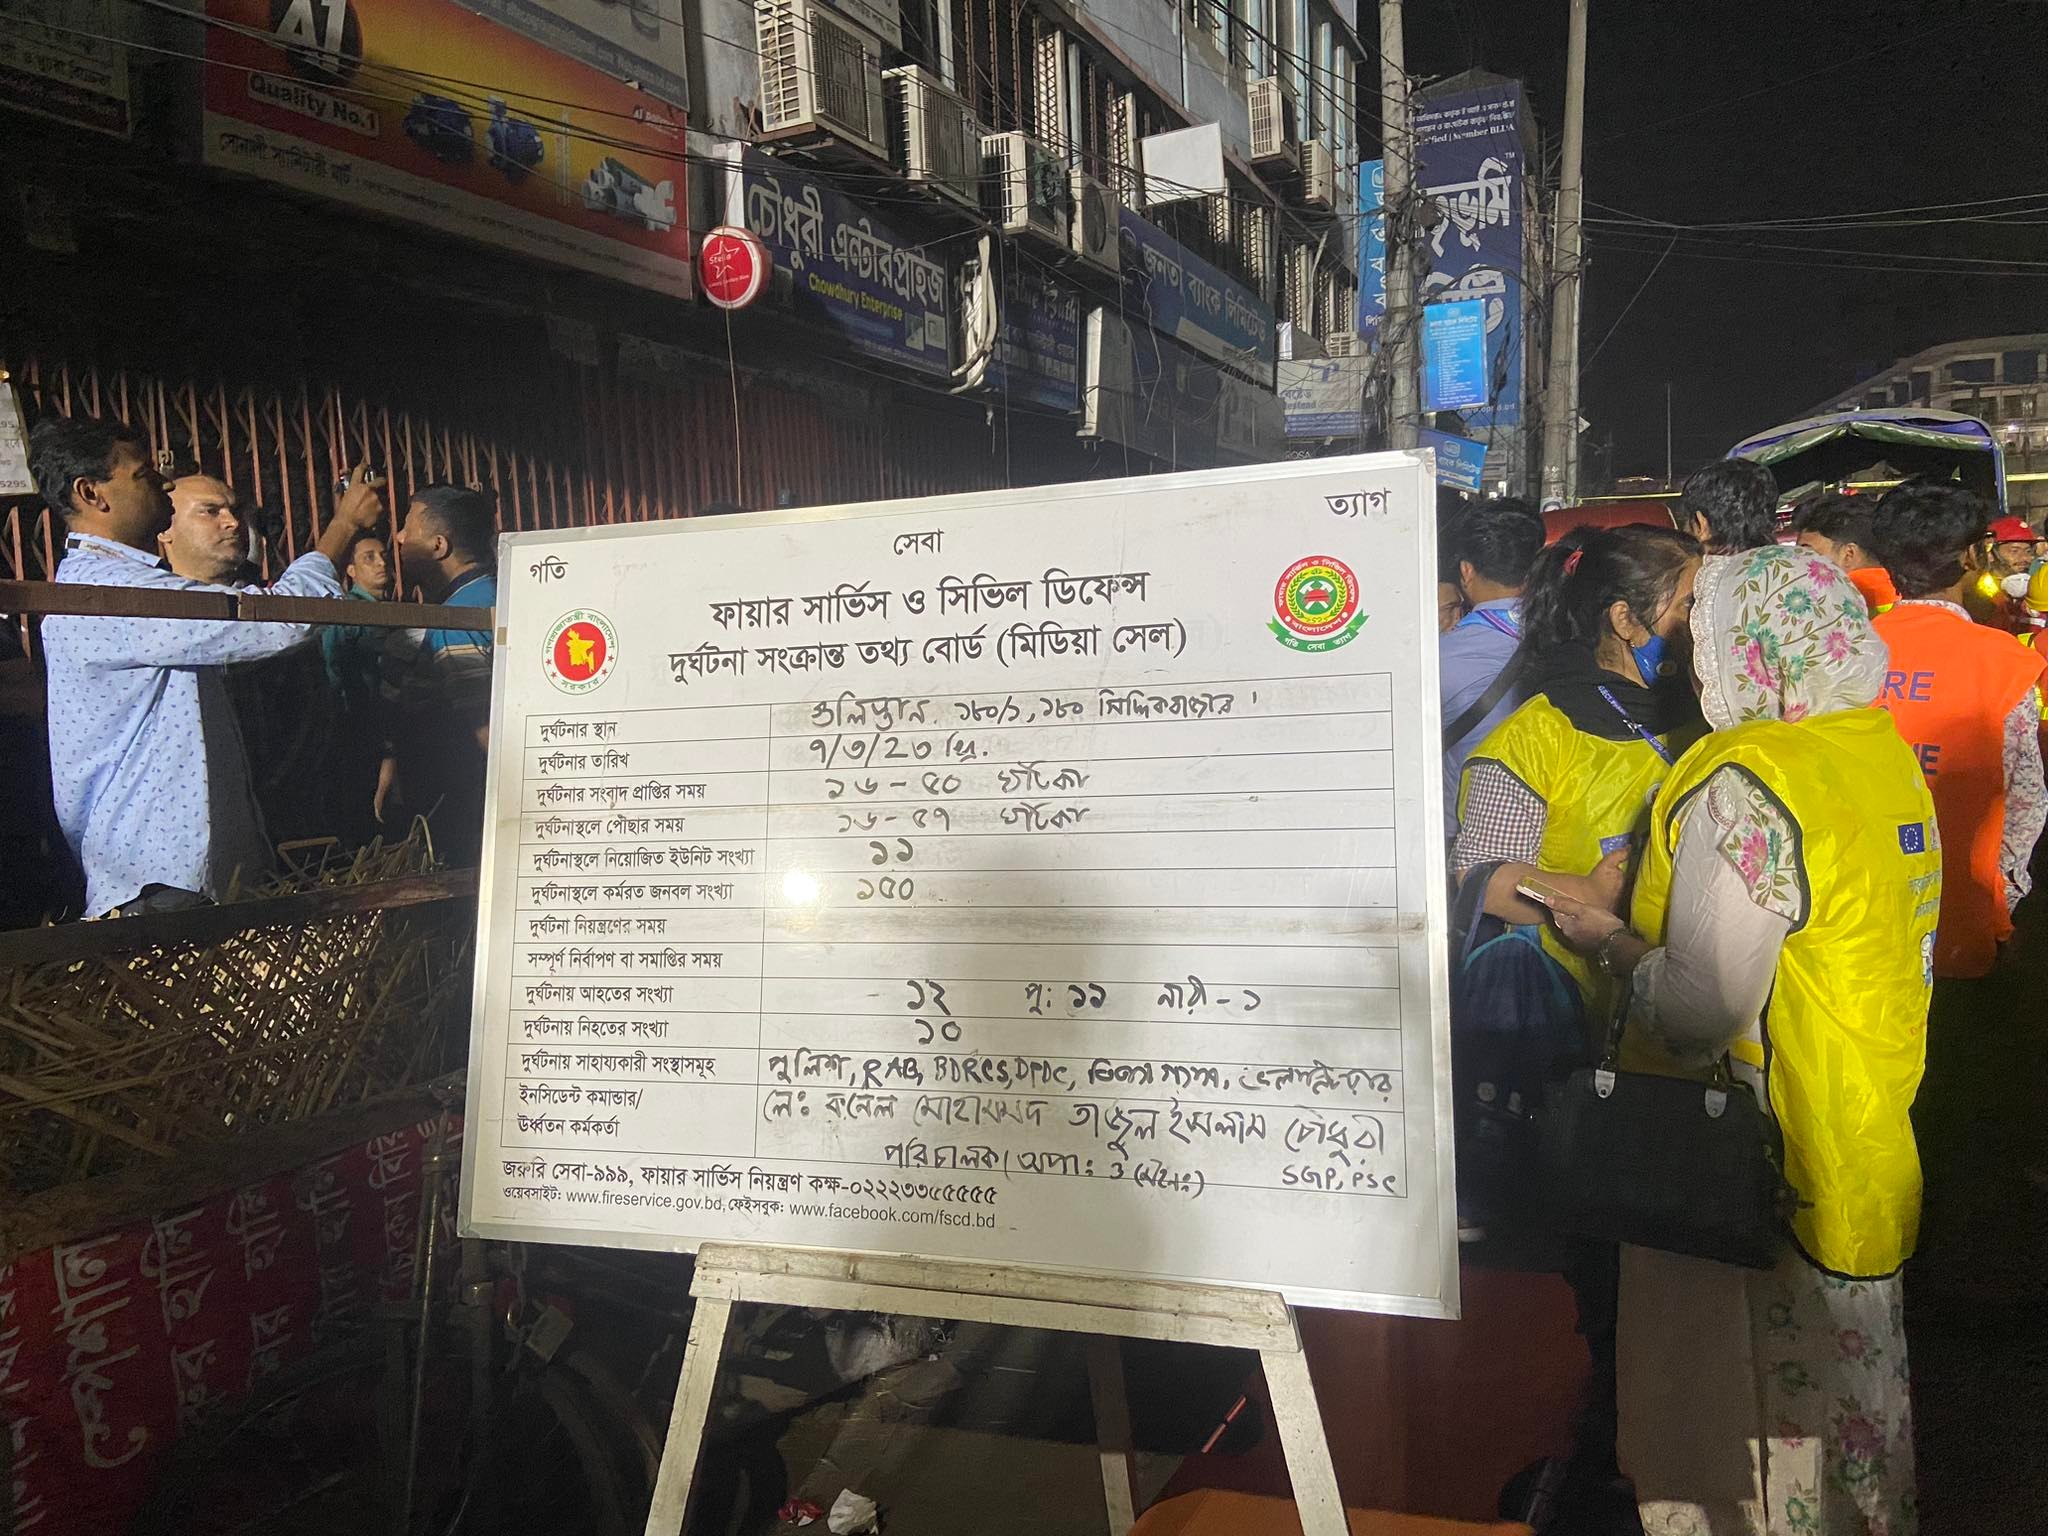 A1
Quality No.1
সোনালী স্যানিটারী মার্ট
Stella
চৌধুরী এন্টারপ্রাইজ
Chowdhury Enterprise
জনতা ব্যাংক লিমিটেড
Member BLDA
5295
ত্যাগ
সেবা
গতি
ফায়ার সার্ভিস ও সিভিল ডিফেন্স
দুর্ঘটনা সংক্রান্ত তথ্য বোর্ড (মিডিয়া সেল)
গণপ্রজাতন্ত্রী বাংলাদেশ
সরকার
ফায়ার সার্ভিস ও সিভিল ডিফেন্স
বাংলাদেশ
গতি সেবা ত্যাগ
দুর্ঘটনার স্থান গুলিস্তান. ১৮০/১, ১৮০ সিদ্দিকবাজার।
দুর্ঘটনার তারিখ ৭/৩/২৩ খ্রি.
দুর্ঘটনার সংবাদ প্রাপ্তির সময় ১৬-৫০ ঘটিকা
দুর্ঘটনাস্থলে পৌছার সময় ১৬-৫৭ ঘটিকা
দুর্ঘটনাস্থলে নিয়োজিত ইউনিট সংখ্যা ১১
দুর্ঘটনাস্থলে কর্মরত জনবল সংখ্যা ১৫০
দুর্ঘটনা নিয়ন্ত্রণের সময়
সম্পূর্ণ নির্বাপণ বা সমাপ্তির সময়
দুর্ঘটনায় আহতের সংখ্যা ১২ পু: ১১ নারী - ১
দুর্ঘটনায় নিহতের সংখ্যা ১০
দুর্ঘটনায় সাহায্যকারী সংস্থাসমূহ পুলিশ, RAB, BDRCS, DPDC, তিতাস গ্যাস, ভলান্টিয়ার
ইনসিডেন্ট কমান্ডার/ লে: কর্নেল মোহাম্মদ তাজুল ইসলাম চৌধুরী
ঊর্ধ্বতন কর্মকর্তা পরিচালক (অপা: ও মেইন:) SGP, PSC
জরুরি সেবা-৯৯৯, ফায়ার সার্ভিস নিয়ন্ত্রণ কক্ষ-০২২২৩৩৫৫৫৫৫
ওয়েবসাইট: www.fireservice.gov.bd, ফেইসবুক: www.facebook.com/fscd.bd
স্পেশাল